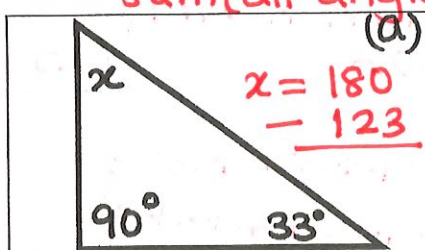 (a)
x
x = 180
- 123
90°
33°